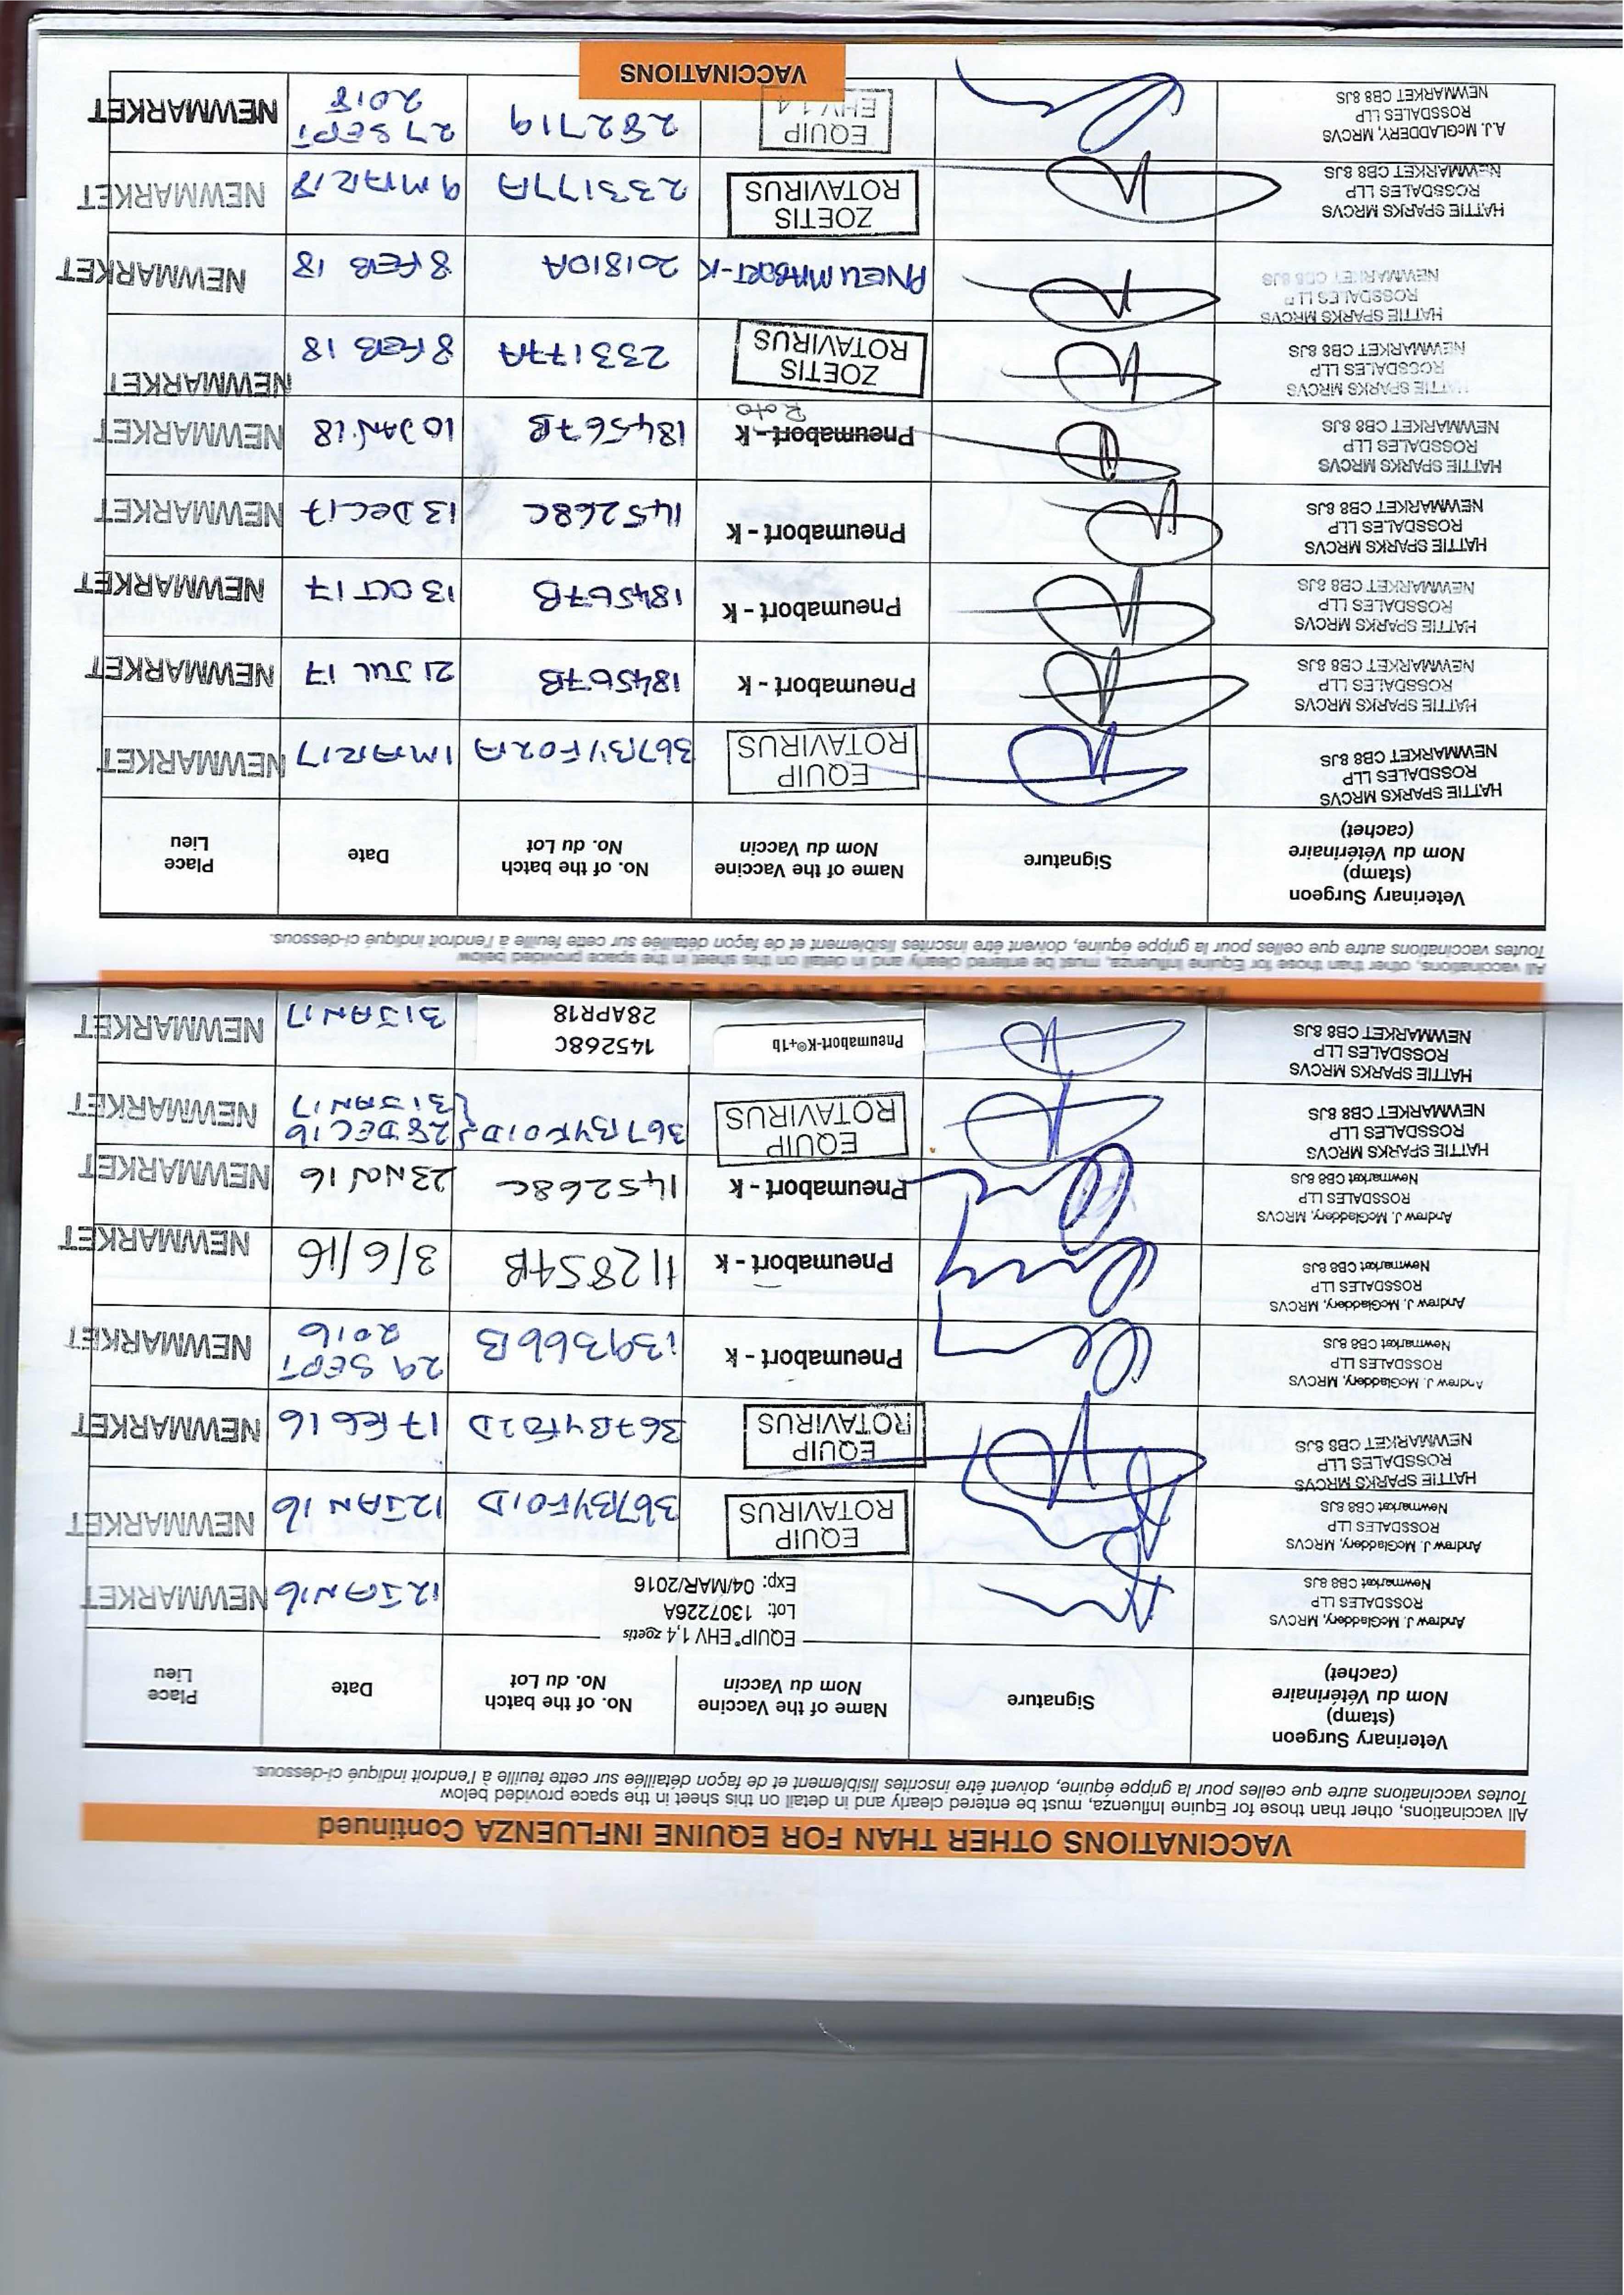 VACCINATIONS OTHER THAN FOR EQUINE INFLUENZA Continued
All vaccinations, other than those for Equine Influenza, must be entered clearly and in detail on this sheet in the space provided below
Toutes vaccinations autre que celles pour la grippe équine, doivent être inscrites lisiblement et de façon détaillée sur cette feuille a l'endroit indiqué ci-dessous.
Veterinary Surgeon
(stamp)
Nom du Vétérinaire
(cachet)
Signature
Name of the Vaccine
Nom du Vaccin
No. of the batch
No. du Lot
Date
Place
Lieu
Andrew J. McGladdery, MRCVS
ROSSDALES LLP
Newmarket CB8 8JS
EQUIP® EHV 1,4 zoetis
Lot: 1307226A
Exp: 04/MAR/2016
12 JAN 16
NEWMARKET
Andrew J. McGladdery, MRCVS
ROSSDALES LLP
Newmarket CB8 8JS
EQUIP
ROTAVIRUS
367BYF01D
12 JAN 16
NEWMARKET
HATTIE SPARKS MRCVS
ROSSDALES LLP
NEWMARKET CB8 8JS
EQUIP
ROTAVIRUS
367BYF01D
17 FEB 16
NEWMARKET
Andrew J. McGladdery, MRCVS
ROSSDALES LLP
Newmarket CB8 8JS
Pneumabort - k
139366B
29 SEPT
2016
NEWMARKET
Andrew J. McGladdery, MRCVS
ROSSDALES LLP
Newmarket CB8 8JS
Pneumabort - k
112854B
3/6/16
NEWMARKET
Andrew J. McGladdery, MRCVS
ROSSDALES LLP
Newmarket CB8 8JS
Pneumabort - k
145268C
23 NOV 16
NEWMARKET
HATTIE SPARKS MRCVS
ROSSDALES LLP
NEWMARKET CB8 8JS
EQUIP
ROTAVIRUS
367BYF01D
28 DEC 16
31 JAN 17
NEWMARKET
HATTIE SPARKS MRCVS
ROSSDALES LLP
NEWMARKET CB8 8JS
Pneumabort-K®+1b
145268C
28APR18
31 JAN 17
NEWMARKET
All vaccinations, other than those for Equine Influenza, must be entered clearly and in detail on this sheet in the space provided below
Toutes vaccinations autre que celles pour la grippe équine, doivent être inscrites lisiblement et de façon détaillée sur cette feuille a l'endroit indiqué ci-dessous.
Veterinary Surgeon
(stamp)
Nom du Vétérinaire
(cachet)
Signature
Name of the Vaccine
Nom du Vaccin
No. of the batch
No. du Lot
Date
Place
Lieu
HATTIE SPARKS MRCVS
ROSSDALES LLP
NEWMARKET CB8 8JS
EQUIP
ROTAVIRUS
367BYF02A
1 MAR 17
NEWMARKET
HATTIE SPARKS MRCVS
ROSSDALES LLP
NEWMARKET CB8 8JS
Pneumabort - k
184567B
21 JUL 17
NEWMARKET
HATTIE SPARKS MRCVS
ROSSDALES LLP
NEWMARKET CB8 8JS
Pneumabort - k
184567B
13 OCT 17
NEWMARKET
HATTIE SPARKS MRCVS
ROSSDALES LLP
NEWMARKET CB8 8JS
Pneumabort - k
145268C
13 DEC 17
NEWMARKET
HATTIE SPARKS MRCVS
ROSSDALES LLP
NEWMARKET CB8 8JS
Pneumabort - k
Roto
184567B
10 JAN 18
NEWMARKET
HATTIE SPARKS MRCVS
ROSSDALES LLP
NEWMARKET CB8 8JS
ZOETIS
ROTAVIRUS
233177A
8 FEB 18
NEWMARKET
HATTIE SPARKS MRCVS
ROSSDALES LLP
NEWMARKET CB8 8JS
PNEUMABORT-K
201810A
8 FEB 18
NEWMARKET
HATTIE SPARKS MRCVS
ROSSDALES LLP
NEWMARKET CB8 8JS
ZOETIS
ROTAVIRUS
233177A
9 MAR 18
NEWMARKET
A.J. McGLADDERY, MRCVS
ROSSDALES LLP
NEWMARKET CB8 8JS
EQUIP
EHV 1.4
282719
27 SEPT
2018
NEWMARKET
VACCINATIONS